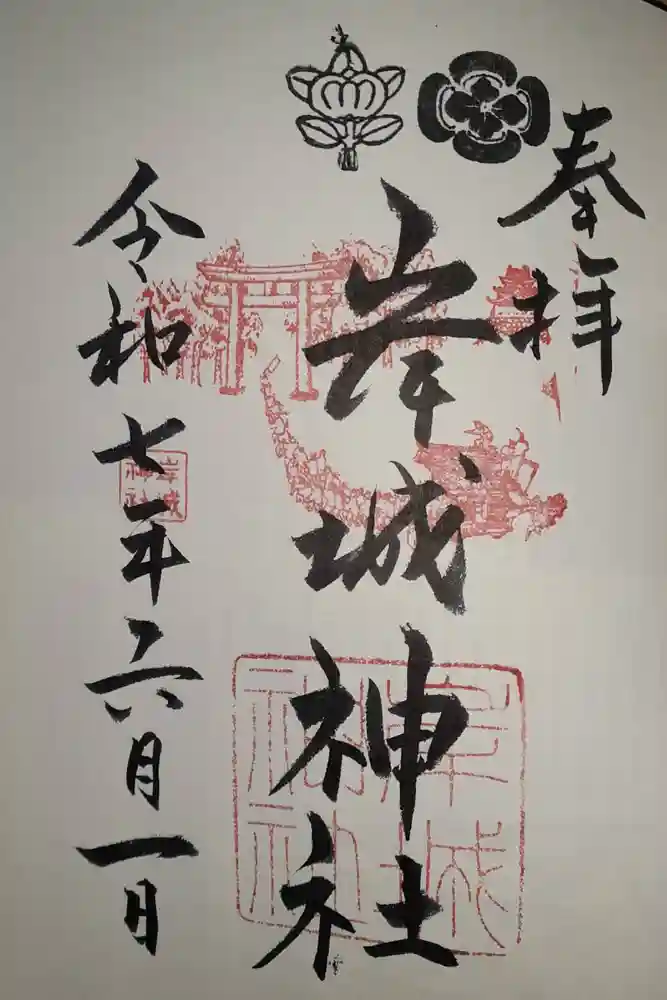 奉拝
岸城神社
令和七年六月一日
岸城神社
岸城神社